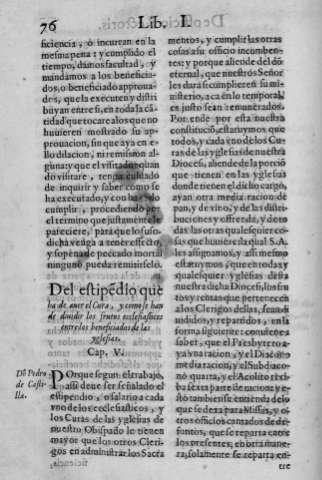 76 Lib. I.
ficiencia, ò incurran en la
mesma pena: y cumplido el
tiempo, damos facultad, y
mandamos a los beneficia-
dos, o beneficiado approua-
dos, que la executen y distri
buyan entre si, en toda la cã
tidad que tocare a los que no
huuieren mostrado su ap-
prouacion, sin que aya en e-
llo dilacion, ni remission al-
guna: y que el visitador quan
do visitare, tenga cuydado
de inquirir y saber como se
ha executado, y con hazerlo
cumplir, procediendo por
el termino que justamente le
pareciere, para que lo suso-
dicho venga a tener effecto,
y so pena de peccado mortal
ninguno pueda remitirselo.
Del estipẽdio que
ha de auer el Cura, y como se han
de diuidir los frutos ecclesiasticos
entre los beneficiados de las
yglesias.
Cap. V.
Dõ Pedro
de Casti-
lla.
POrque segun el trabajo,
assi deue ser señalado el
estipendio, o salario a cada
vno de los ecclesiasticos, y
los Curas de las yglesias de
nuestro Obispado le tienen
mayor que los otros Cleri-
gos en administrar los Sacra
mentos, y cumplir las otras
cosas a su officio incomben-
tes: y porque allende del dõ
eternal, que nuestro Señor
les dara si cumplieren su mi-
nisterio, aca en lo temporal,
es justo sean remunerados.
Por ende por esta nuestra
constituciõ, estatuymos que
todos, y cada vno de los Cu-
ras de las yglesias de nuestra
Diocesi, allende de la porciõ
que tienen en las yglesias
donde tienen el dicho cargo,
ayan otra media racion de
pan, y de vino, y de las distri-
buciones y offrenda, y de to-
das las otras qualesquier co-
sas que huuiere la qual S.A.
les assignamos, y assi mesmo
estatuymos, que en todas y
qualesquier yglesias desta
nuestra dicha Diocesi, los fru
tos y rentas que pertenecen
a los Clerigos dellas, sean di
uididos, y repartidos, en la
forma siguiente: conuiene a
saber, que el Presbytero a-
ya vna racion, y el Diacono
media racion, y el Subdiaco-
nõ quarta, y el Acolito reci-
ba sexta parte de racion: y e-
sto tambien se entienda de lo
que se dexa para Missas, y o-
tros officios cantados de de-
funtos, que se reparta entre
los presentes, en otra mane-
ra, solamente se reparta en-
tre